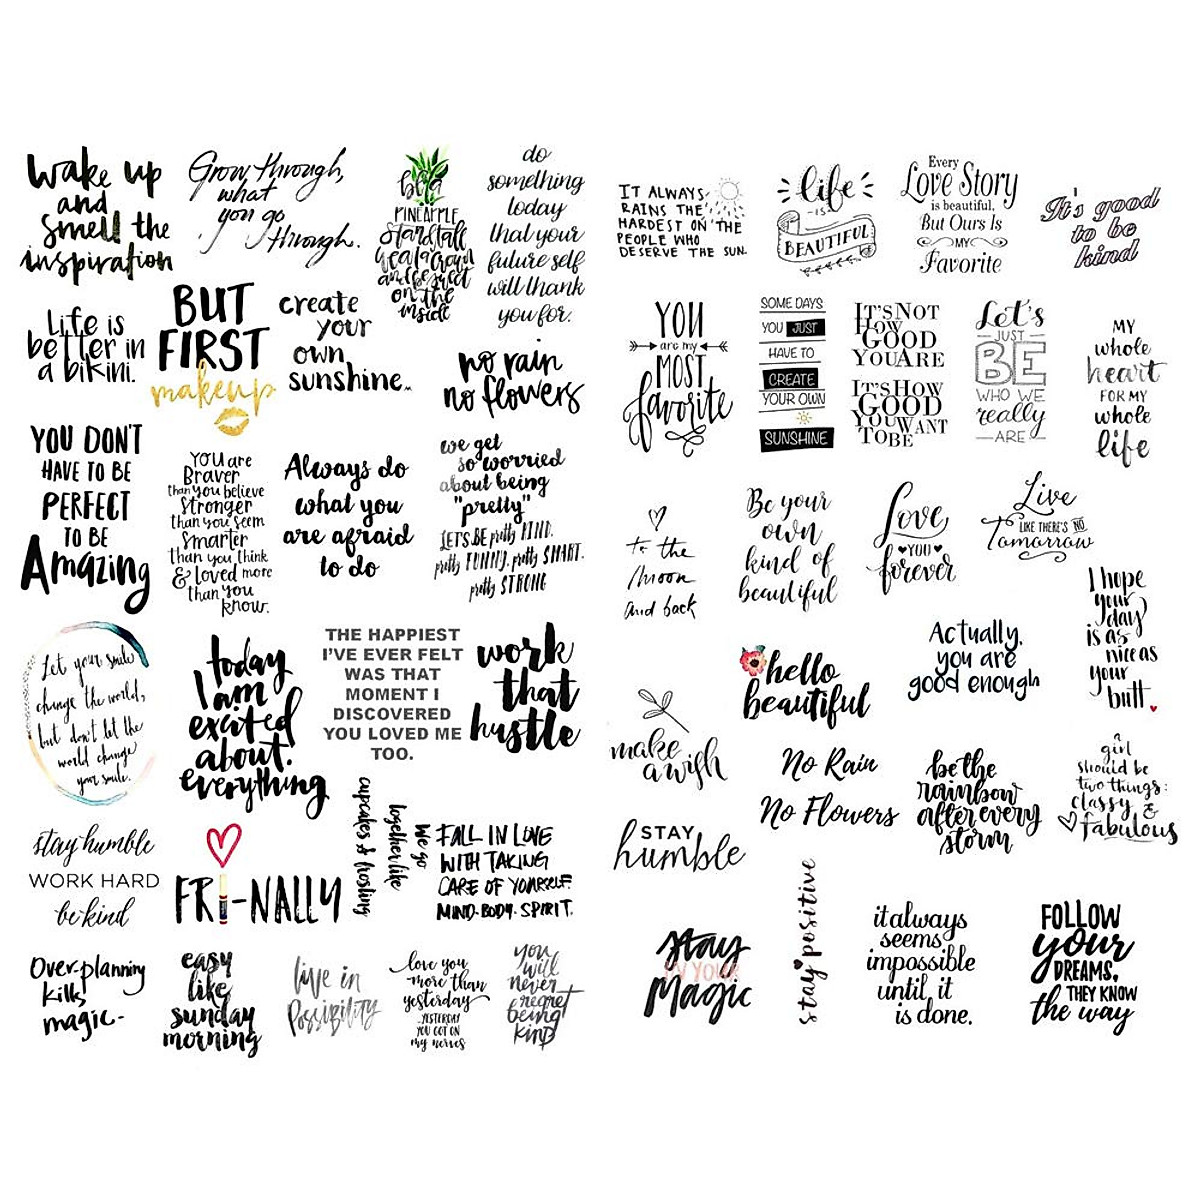 wake up
and
smell the
inspiration
Grow through,
what
you go
through.
be a
PINEAPPLE
Stand tall
wear a crown
and be sweet
on the
inside
do
something
today
that your
future self
will thank
you for.
Life is
better in
a bikini.
BUT
FIRST
makeup
create
your
own
sunshine..
no rain
no flowers
YOU DON'T
HAVE TO BE
PERFECT
TO BE
Amazing
You are
Braver
than you believe
Stronger
than you seem
Smarter
than you think
& loved more
than you
know.
Always do
what you
are afraid
to do
we get
so worried
about being
"pretty"
LET'S BE pretty KIND.
pretty FUNNY. pretty SMART.
pretty STRONG
Let your smile
change the world,
but don't let the
world change
your smile.
today
I am
excited
about.
everything
THE HAPPIEST
I'VE EVER FELT
WAS THAT
MOMENT I
DISCOVERED
YOU LOVED ME
TOO.
work
that
hustle
stay humble
WORK HARD
be kind
FRI-NALLY
We go
together like
cupcakes & frosting
FALL IN LOVE
WITH TAKING
CARE OF YOURSELF.
MIND. BODY. SPIRIT.
Over-planning
kills
magic-
easy
like
sunday
morning
live in
Possibility
love you
more than
yesterday
YESTERDAY
YOU GOT ON
my nerves
you
will
never
regret
being
kind
IT ALWAYS
RAINS THE
HARDEST ON THE
PEOPLE WHO
DESERVE THE SUN.
life
IS
BEAUTIFUL
Every
Love Story
is beautiful,
But Ours Is
MY
Favorite
It's good
to be
kind
YOU
are my
MOST
favorite
SOME DAYS
YOU JUST
HAVE TO
CREATE
YOUR OWN
SUNSHINE
IT'S NOT
HOW
GOOD
YOU ARE
IT'S HOW
GOOD
YOU WANT
TO BE
Let's
JUST
BE
WHO WE
really
ARE
MY
whole
heart
FOR MY
whole
life
to the
moon
and back
Be your
own
kind of
beautiful
Love
YOU
forever
Live
LIKE THERE'S NO
Tomorrow
I hope
your
day
is as
nice as
your
butt.
hello
beautiful
Actually,
you are
good enough
make
a wish
No Rain
No Flowers
be the
rainbow
after every
storm
a
girl
should be
two things:
classy &
fabulous
STAY
humble
stay
IN YOUR
Magic
stay positive
it always
seems
impossible
until it
is done.
FOLLOW
your
DREAMS,
THEY KNOW
the way